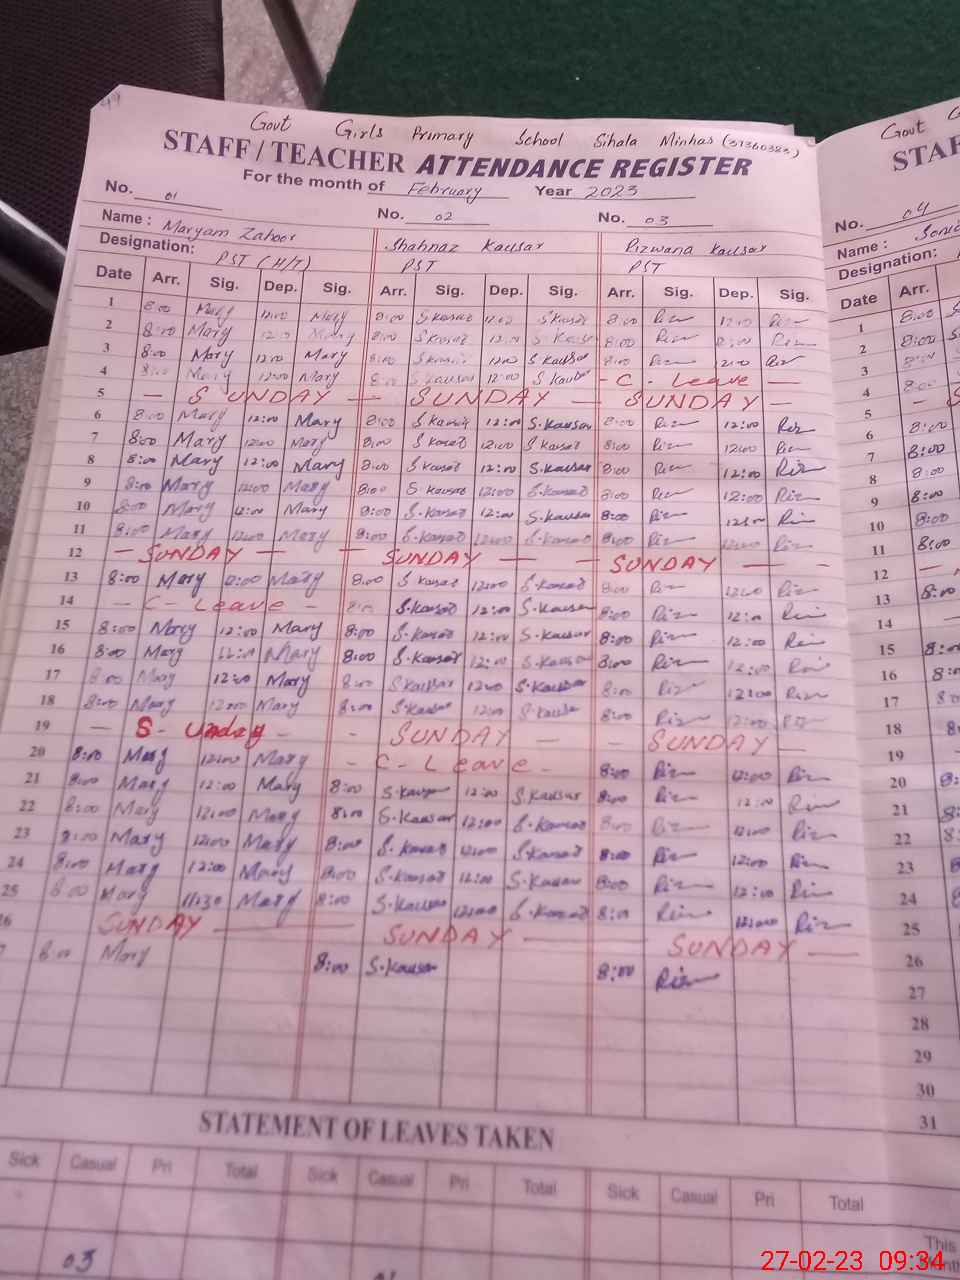 49
Govt Girls Primary School Sihala Minhas (37360383)
STAFF / TEACHER ATTENDANCE REGISTER
For the month of February Year 2023
No. 01 No. 02 No. 03
Name : Maryam Zahoor Shahnaz Kausar Rizwana Kausar
Designation: PST (H/T) PST PST
Date Arr. Sig. Dep. Sig. Arr. Sig. Dep. Sig. Arr. Sig. Dep. Sig.
1 8:00 Mary 12:00 Mary 8:00 S Kausar 12:00 S Kausar 8:00 Riz 12:00 Riz
2 8:00 Mary 12:00 Mary 8:00 S Kausar 12:00 S Kausar 8:00 Riz 12:00 Riz
3 8:00 Mary 12:00 Mary 8:00 S Kausar 12:00 S Kausar 8:00 Riz 12:00 Riz
4 8:00 Mary 12:00 Mary 8:00 S Kausar 12:00 S Kausar - C - Leave -
5 - SUNDAY - SUNDAY - SUNDAY -
6 8:00 Mary 12:00 Mary 8:00 S Kausar 12:00 S.Kausar 8:00 Riz 12:00 Riz
7 8:00 Mary 12:00 Mary 8:00 S Kausar 12:00 S Kausar 8:00 Riz 12:00 Riz
8 8:00 Mary 12:00 Mary 8:00 S Kausar 12:00 S.Kausar 8:00 Riz 12:00 Riz
9 8:00 Mary 12:00 Mary 8:00 S. Kausar 12:00 S.Kausar 8:00 Riz 12:00 Riz
10 8:00 Mary 12:00 Mary 8:00 S.Kausar 12:00 S.Kausar 8:00 Riz 12:00 Riz
11 8:00 Mary 12:00 Mary 8:00 S.Kausar 12:00 S.Kausar 8:00 Riz 12:00 Riz
12 - SUNDAY - - SUNDAY - - SUNDAY -
13 8:00 Mary 12:00 Mary 8:00 S Kausar 12:00 S.Kausar 8:00 Riz 12:00 Riz
14 - C - Leave - 8:00 S.Kausar 12:00 S.Kausar 8:00 Riz 12:00 Riz
15 8:00 Mary 12:00 Mary 8:00 S.Kausar 12:00 S.Kausar 8:00 Riz 12:00 Riz
16 8:00 Mary 12:00 Mary 8:00 S.Kausar 12:00 S.Kausar 8:00 Riz 12:00 Riz
17 8:00 Mary 12:00 Mary 8:00 S Kausar 12:00 S.Kausar 8:00 Riz 12:00 Riz
18 8:00 Mary 12:00 Mary 8:00 S.Kausar 12:00 S.Kausar 8:00 Riz 12:00 Riz
19 - S-unday - - SUNDAY - - SUNDAY -
20 8:00 Mary 12:00 Mary - C - Leave - 8:00 Riz 12:00 Riz
21 8:00 Mary 12:00 Mary 8:00 S.Kausar 12:00 S.Kausar 8:00 Riz 12:00 Riz
22 8:00 Mary 12:00 Mary 8:00 S.Kausar 12:00 S.Kausar 8:00 Riz 12:00 Riz
23 8:00 Mary 12:00 Mary 8:00 S.Kausar 12:00 S.Kausar 8:00 Riz 12:00 Riz
24 8:00 Mary 12:00 Mary 8:00 S.Kausar 12:00 S.Kausar 8:00 Riz 12:00 Riz
25 8:00 Mary 11:30 Mary 8:00 S.Kausar 12:00 S.Kausar 8:00 Riz 12:00 Riz
SUNDAY SUNDAY SUNDAY
8:00 Mary 8:00 S.Kausar 8:00 Riz
STATEMENT OF LEAVES TAKEN
Sick Casual Pri Total Sick Casual Pri Total Sick Casual Pri Total
03
Govt
No. 04
Name :
Designation:
Date Arr.
1 8:00
2 8:00
3 8:00
4 8:00
5 -
6 8:00
7 8:00
8 8:00
9 8:00
10 8:00
11 8:00
12 -
13 8:00
14
15 8:00
16
17
18
19
20
21
22
23
24
25
26
27
28
29
30
31
This
27-02-23 09:34